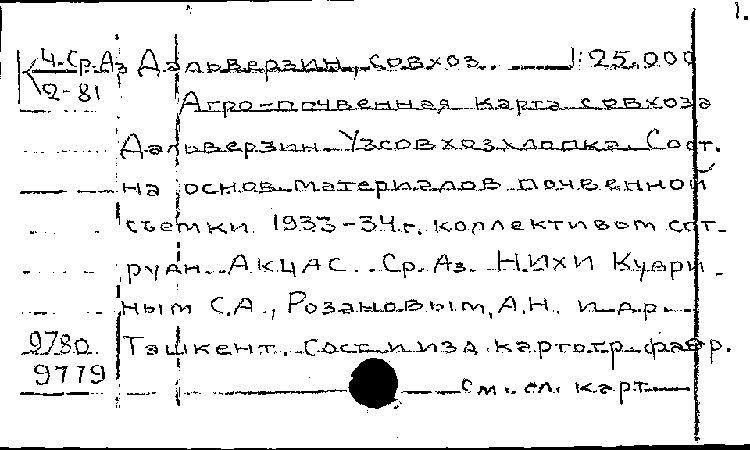 1.
Ч. Ср. Аз Дальверзин, совхоз. 1:25.000
2-81
Агро-почвенная карта совхоза
Дальверзин. Узсовхозхлопка. Сост.
на основ. материалов почвенной
съемки 1933-34г. коллективом сот-
рудн. АКЦАС. Ср. Аз. НИХИ Кудри-
ным С.А., Розановым, А.Н. и др.
9780 Ташкент. Сост. и изд. картогр. фабр.
9779
см. сл. карт